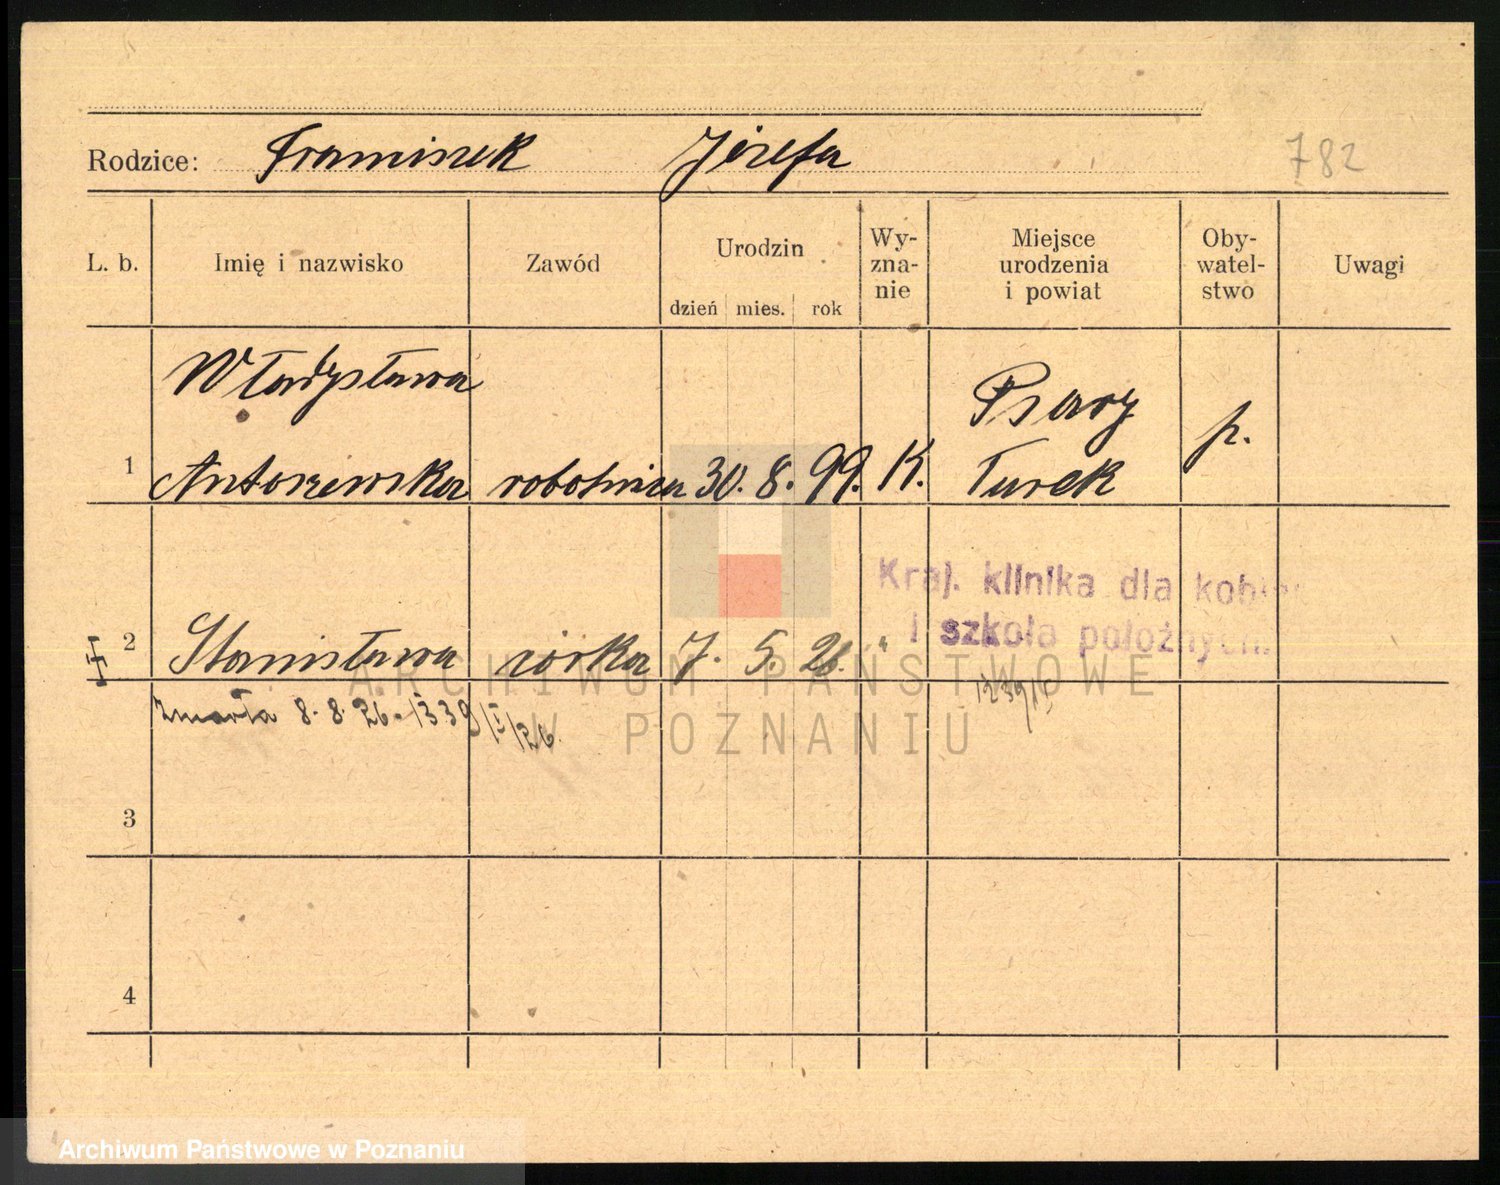 Rodzice: Franciszek Józefa
782
L. b. Imię i nazwisko Zawód Urodzin dzień mies. rok Wy-zna-nie Miejsce urodzenia i powiat Oby-watel-stwo Uwagi
Władysława
Psary
p.
1 Antoszewska robotnica 30. 8. 99. K. Turek
Kraj. klinika dla kobiet
i szkoła położnych.
2 Stanisława córka 7. 5. 26. "
zmarła 8. 8. 26. 1339/I/26.
3
4
ARCHIWUM PAŃSTWOWE
W POZNANIU
Archiwum Państwowe w Poznaniu